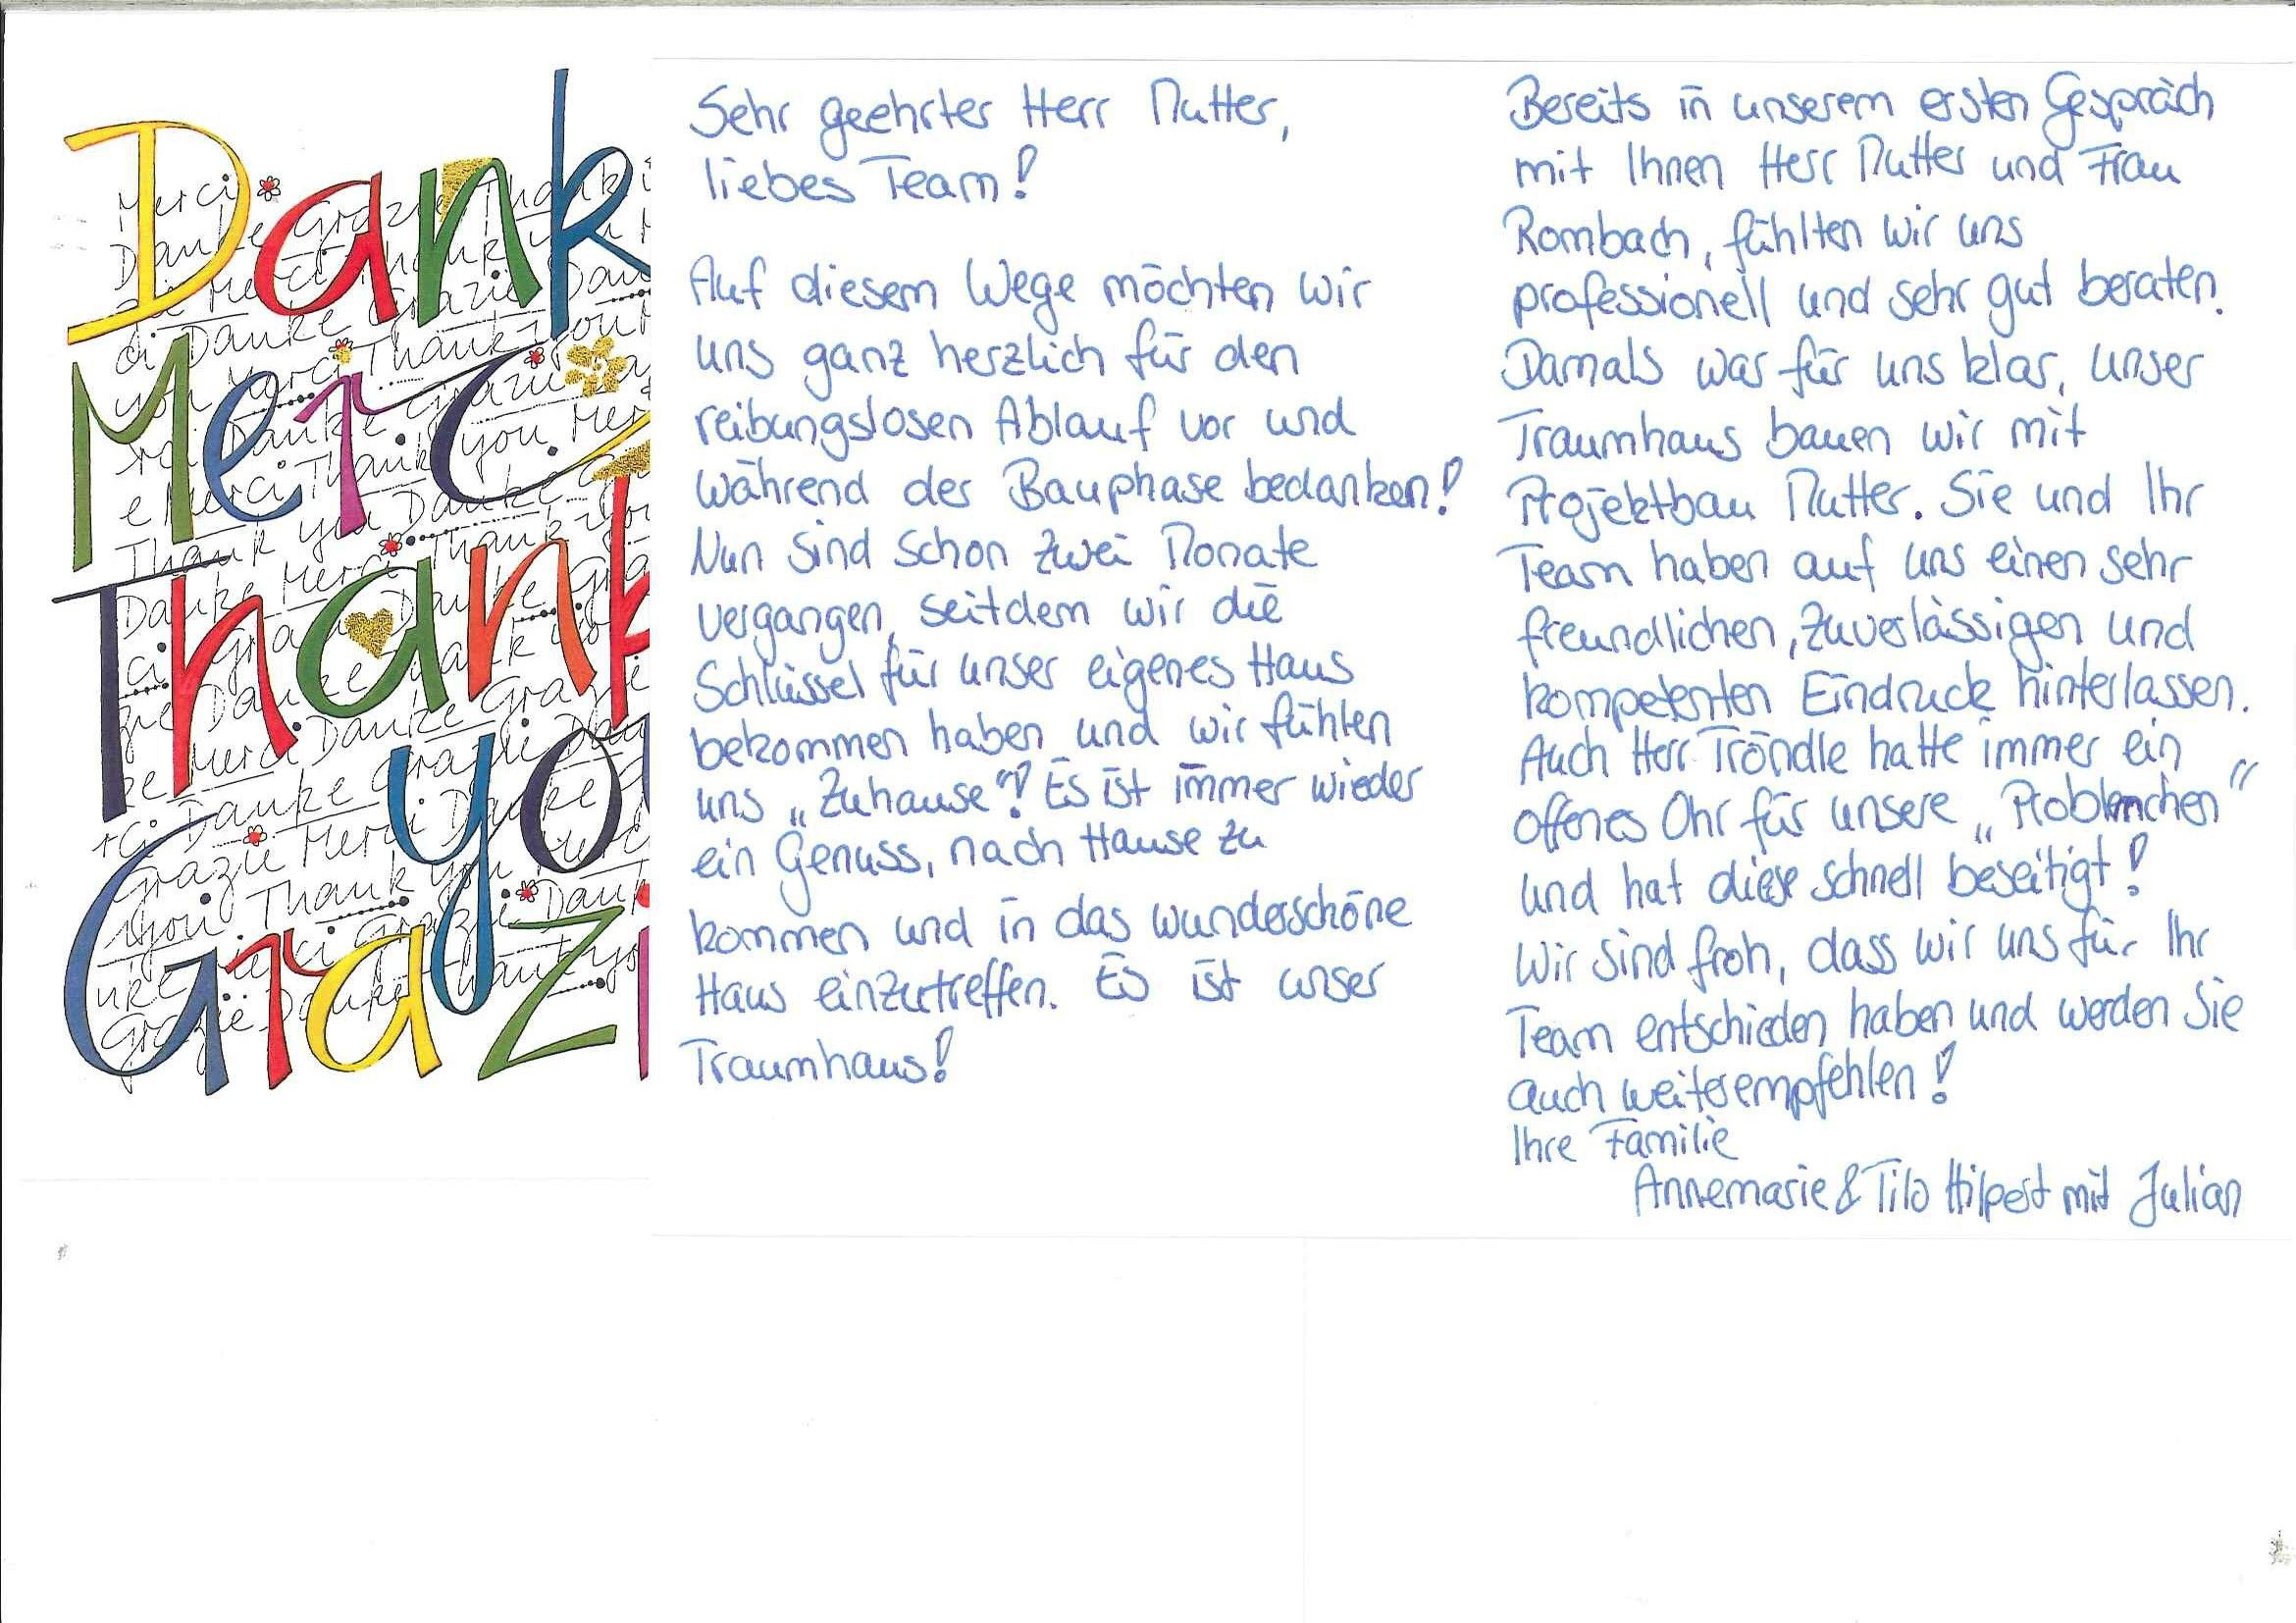 Dank
Merci
Thank
yo
Grazi
Sehr geehrter Herr Mutter,
liebes Team!
Auf diesem Wege möchten wir
uns ganz herzlich für den
reibungslosen Ablauf vor und
während der Bauphase bedanken!
Nun sind schon zwei Monate
vergangen, seitdem wir die
Schlüssel für unser eigenes Haus
bekommen haben und wir fühlen
uns „Zuhause"! Es ist immer wieder
ein Genuss, nach Hause zu
kommen und in das wunderschöne
Haus einzutreffen. Es ist unser
Traumhaus!
Bereits in unserem ersten Gespräch
mit Ihnen Herr Mutter und Frau
Rombach, fühlten wir uns
professionell und sehr gut beraten.
Damals war für uns klar, unser
Traumhaus bauen wir mit
Projektbau Mutter. Sie und Ihr
Team haben auf uns einen sehr
freundlichen, zuverlässigen und
kompetenten Eindruck hinterlassen.
Auch Herr Tröndle hatte immer ein
offenes Ohr für unsere „Problemchen"
und hat diese schnell beseitigt!
Wir sind froh, dass wir uns für Ihr
Team entschieden haben und werden Sie
auch weiterempfehlen!
Ihre Familie
Annemarie & Tilo Hilpert mit Julian